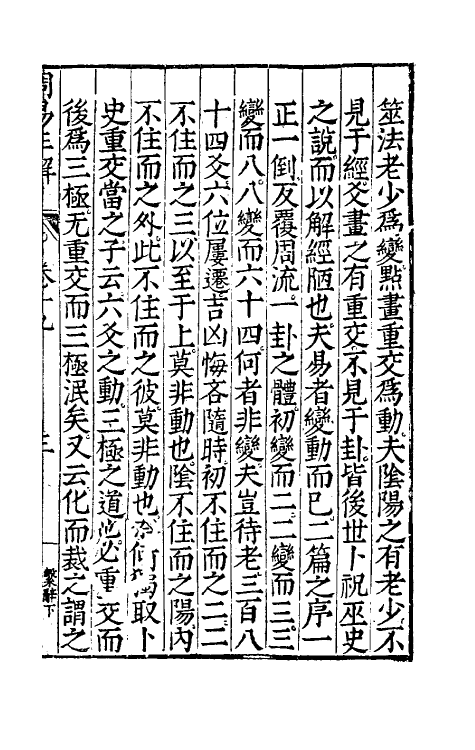 筮法老少為變點畫重交為動夫陰陽之有老少不
見于經爻畫之有重交不見于卦皆後世卜祝巫史
之說而以解經陋也夫易者變動而已二篇之序一
正一倒反覆周流一卦之體初變而二二變而三三
變而八八變而六十四何者非變夫豈待老三百八
十四爻六位屢遷吉凶悔吝隨時初不住而之二二
不住而之三以至于上莫非動也陰不住而之陽內
不住而之外此不住而之彼莫非動也 取卜
史重交當之子云六爻之動三極之道也必重交而
後為三極无重交而三極泯矣又云化而裁之謂之
繫辭下